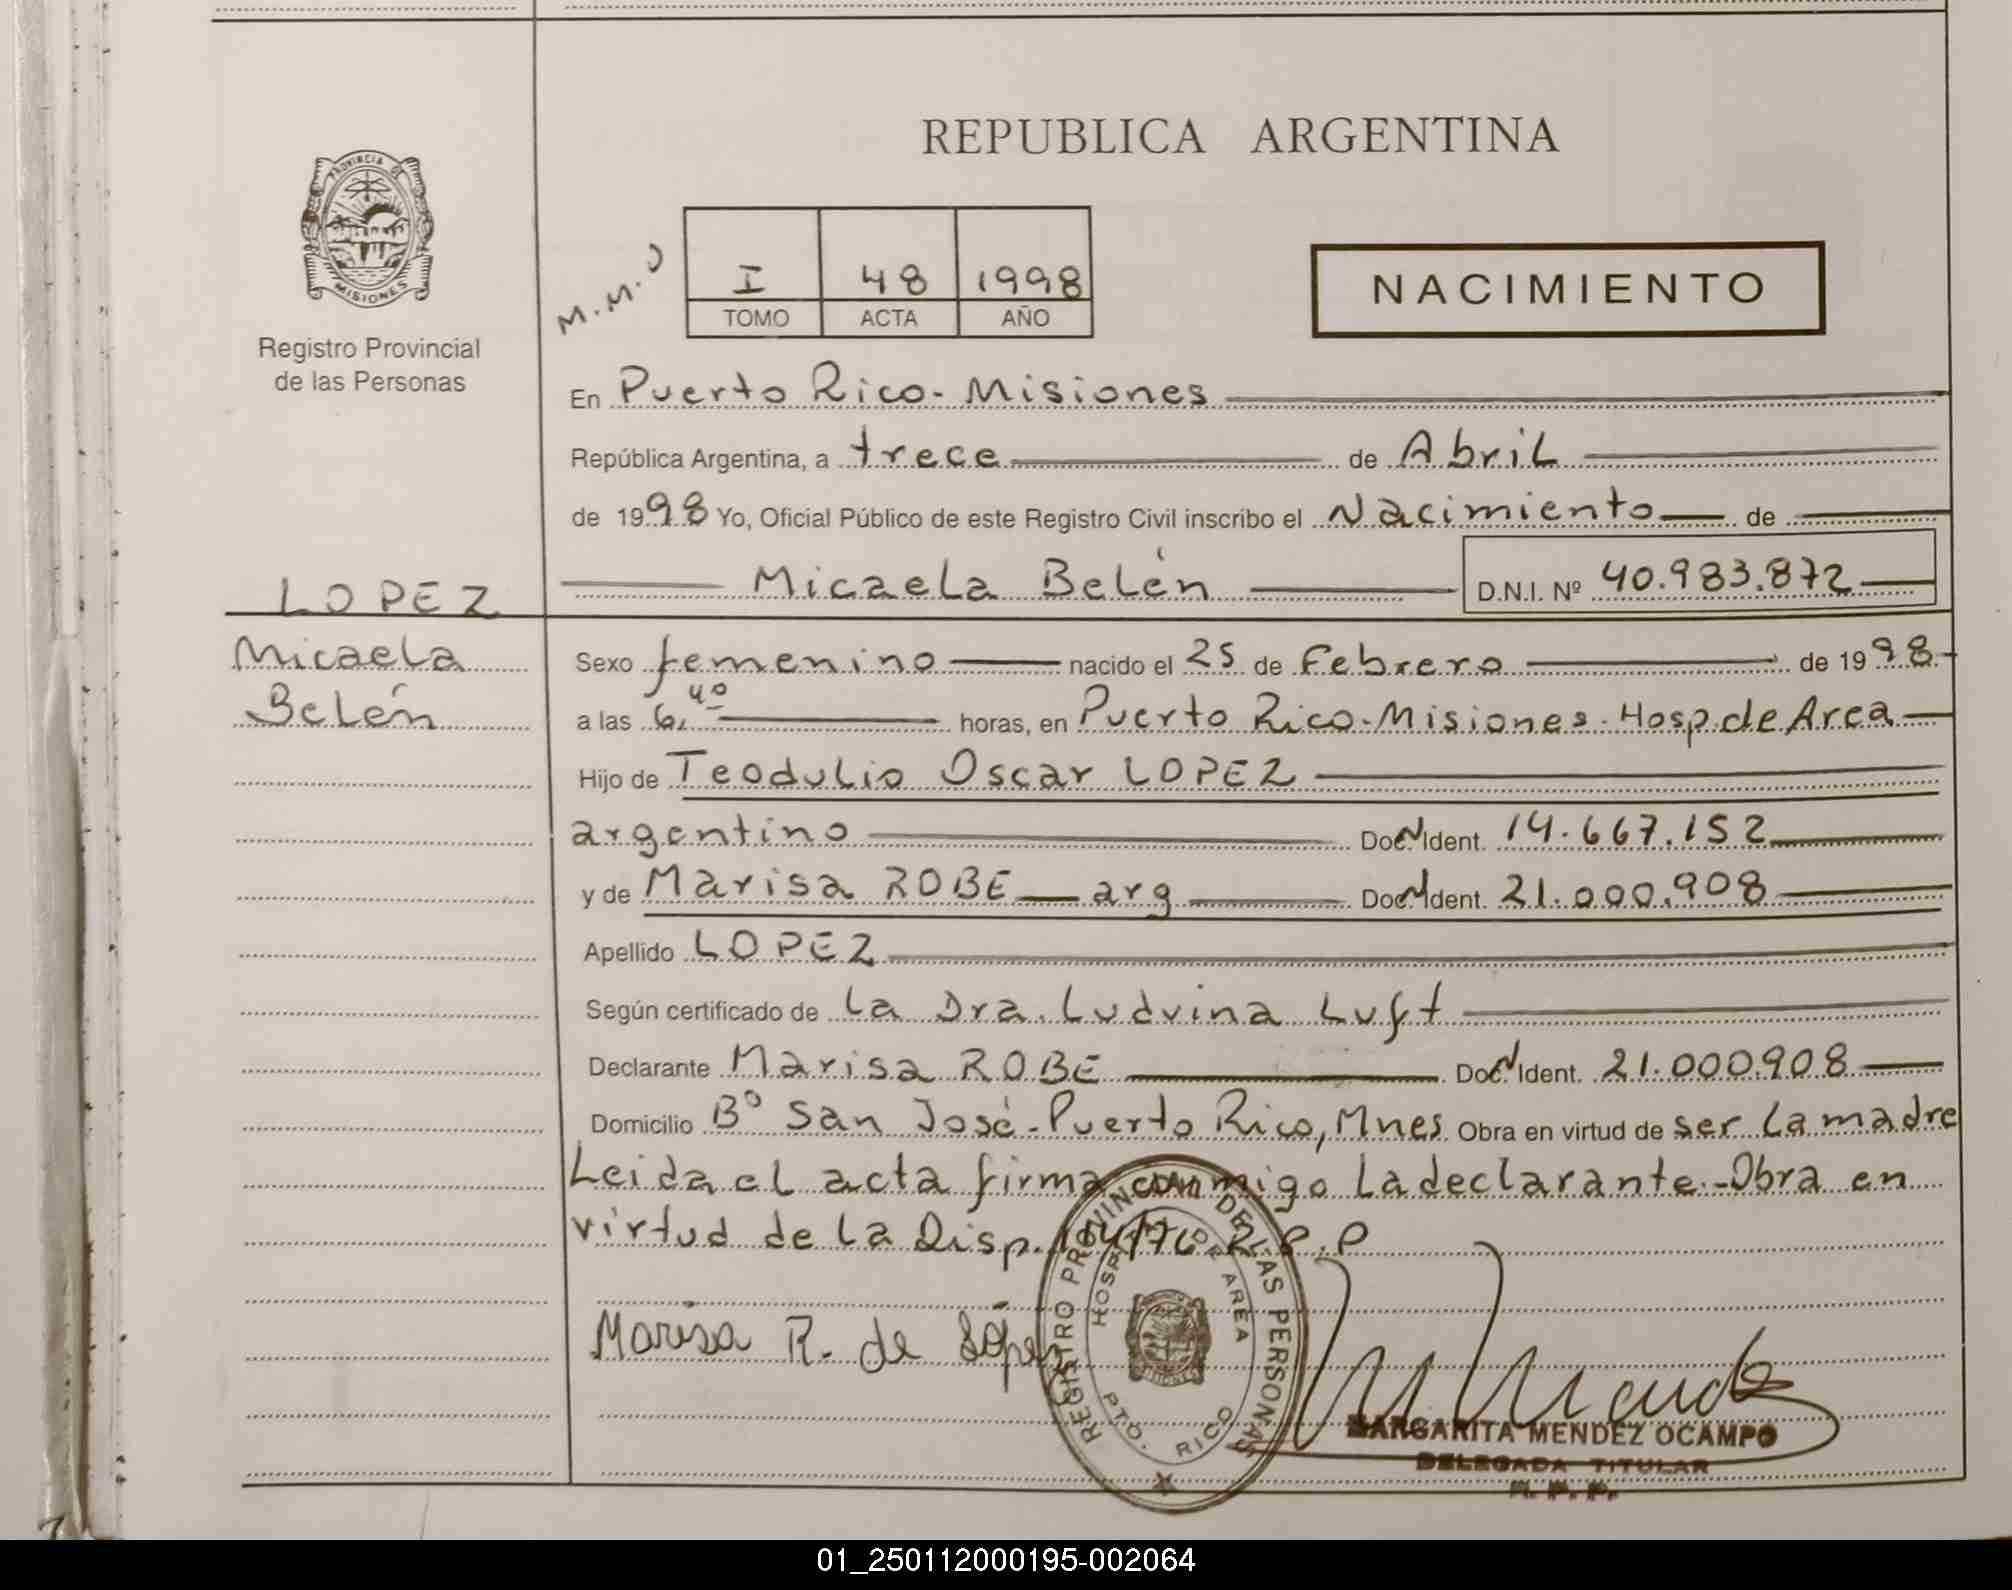 REPUBLICA ARGENTINA
PROVINCIA DE
MISIONES
Registro Provincial
de las Personas
M.M.O
I 48 1998
TOMO ACTA AÑO
NACIMIENTO
En Puerto Rico - Misiones
República Argentina, a trece de Abril
de 1998 Yo, Oficial Público de este Registro Civil inscribo el Nacimiento de
Micaela Belén D.N.I. Nº 40.983.872
LOPEZ
Micaela
Belén
Sexo femenino nacido el 25 de Febrero de 1998
a las 6,40 horas, en Puerto Rico - Misiones - Hosp. de Area
Hijo de Teodulio Oscar LOPEZ
argentino Doc. Ident. 14.667.152
y de Marisa ROBE arg Doc. Ident. 21.000.908
Apellido LOPEZ
Según certificado de la Dra. Ludvina Luft
Declarante Marisa ROBE Doc. Ident. 21.000.908
Domicilio Bº San José - Puerto Rico, Mnes Obra en virtud de ser la madre
Leida el acta firma conmigo la declarante - Obra en
virtud de la Disp. 104/76 R.P.P
Marisa R. de López
REGISTRO PROVINCIAL DE LAS PERSONAS
HOSPITAL DE AREA
PTO. RICO
MARGARITA MENDEZ OCAMPO
DELEGADA TITULAR
R. P. P.
01_250112000195-002064